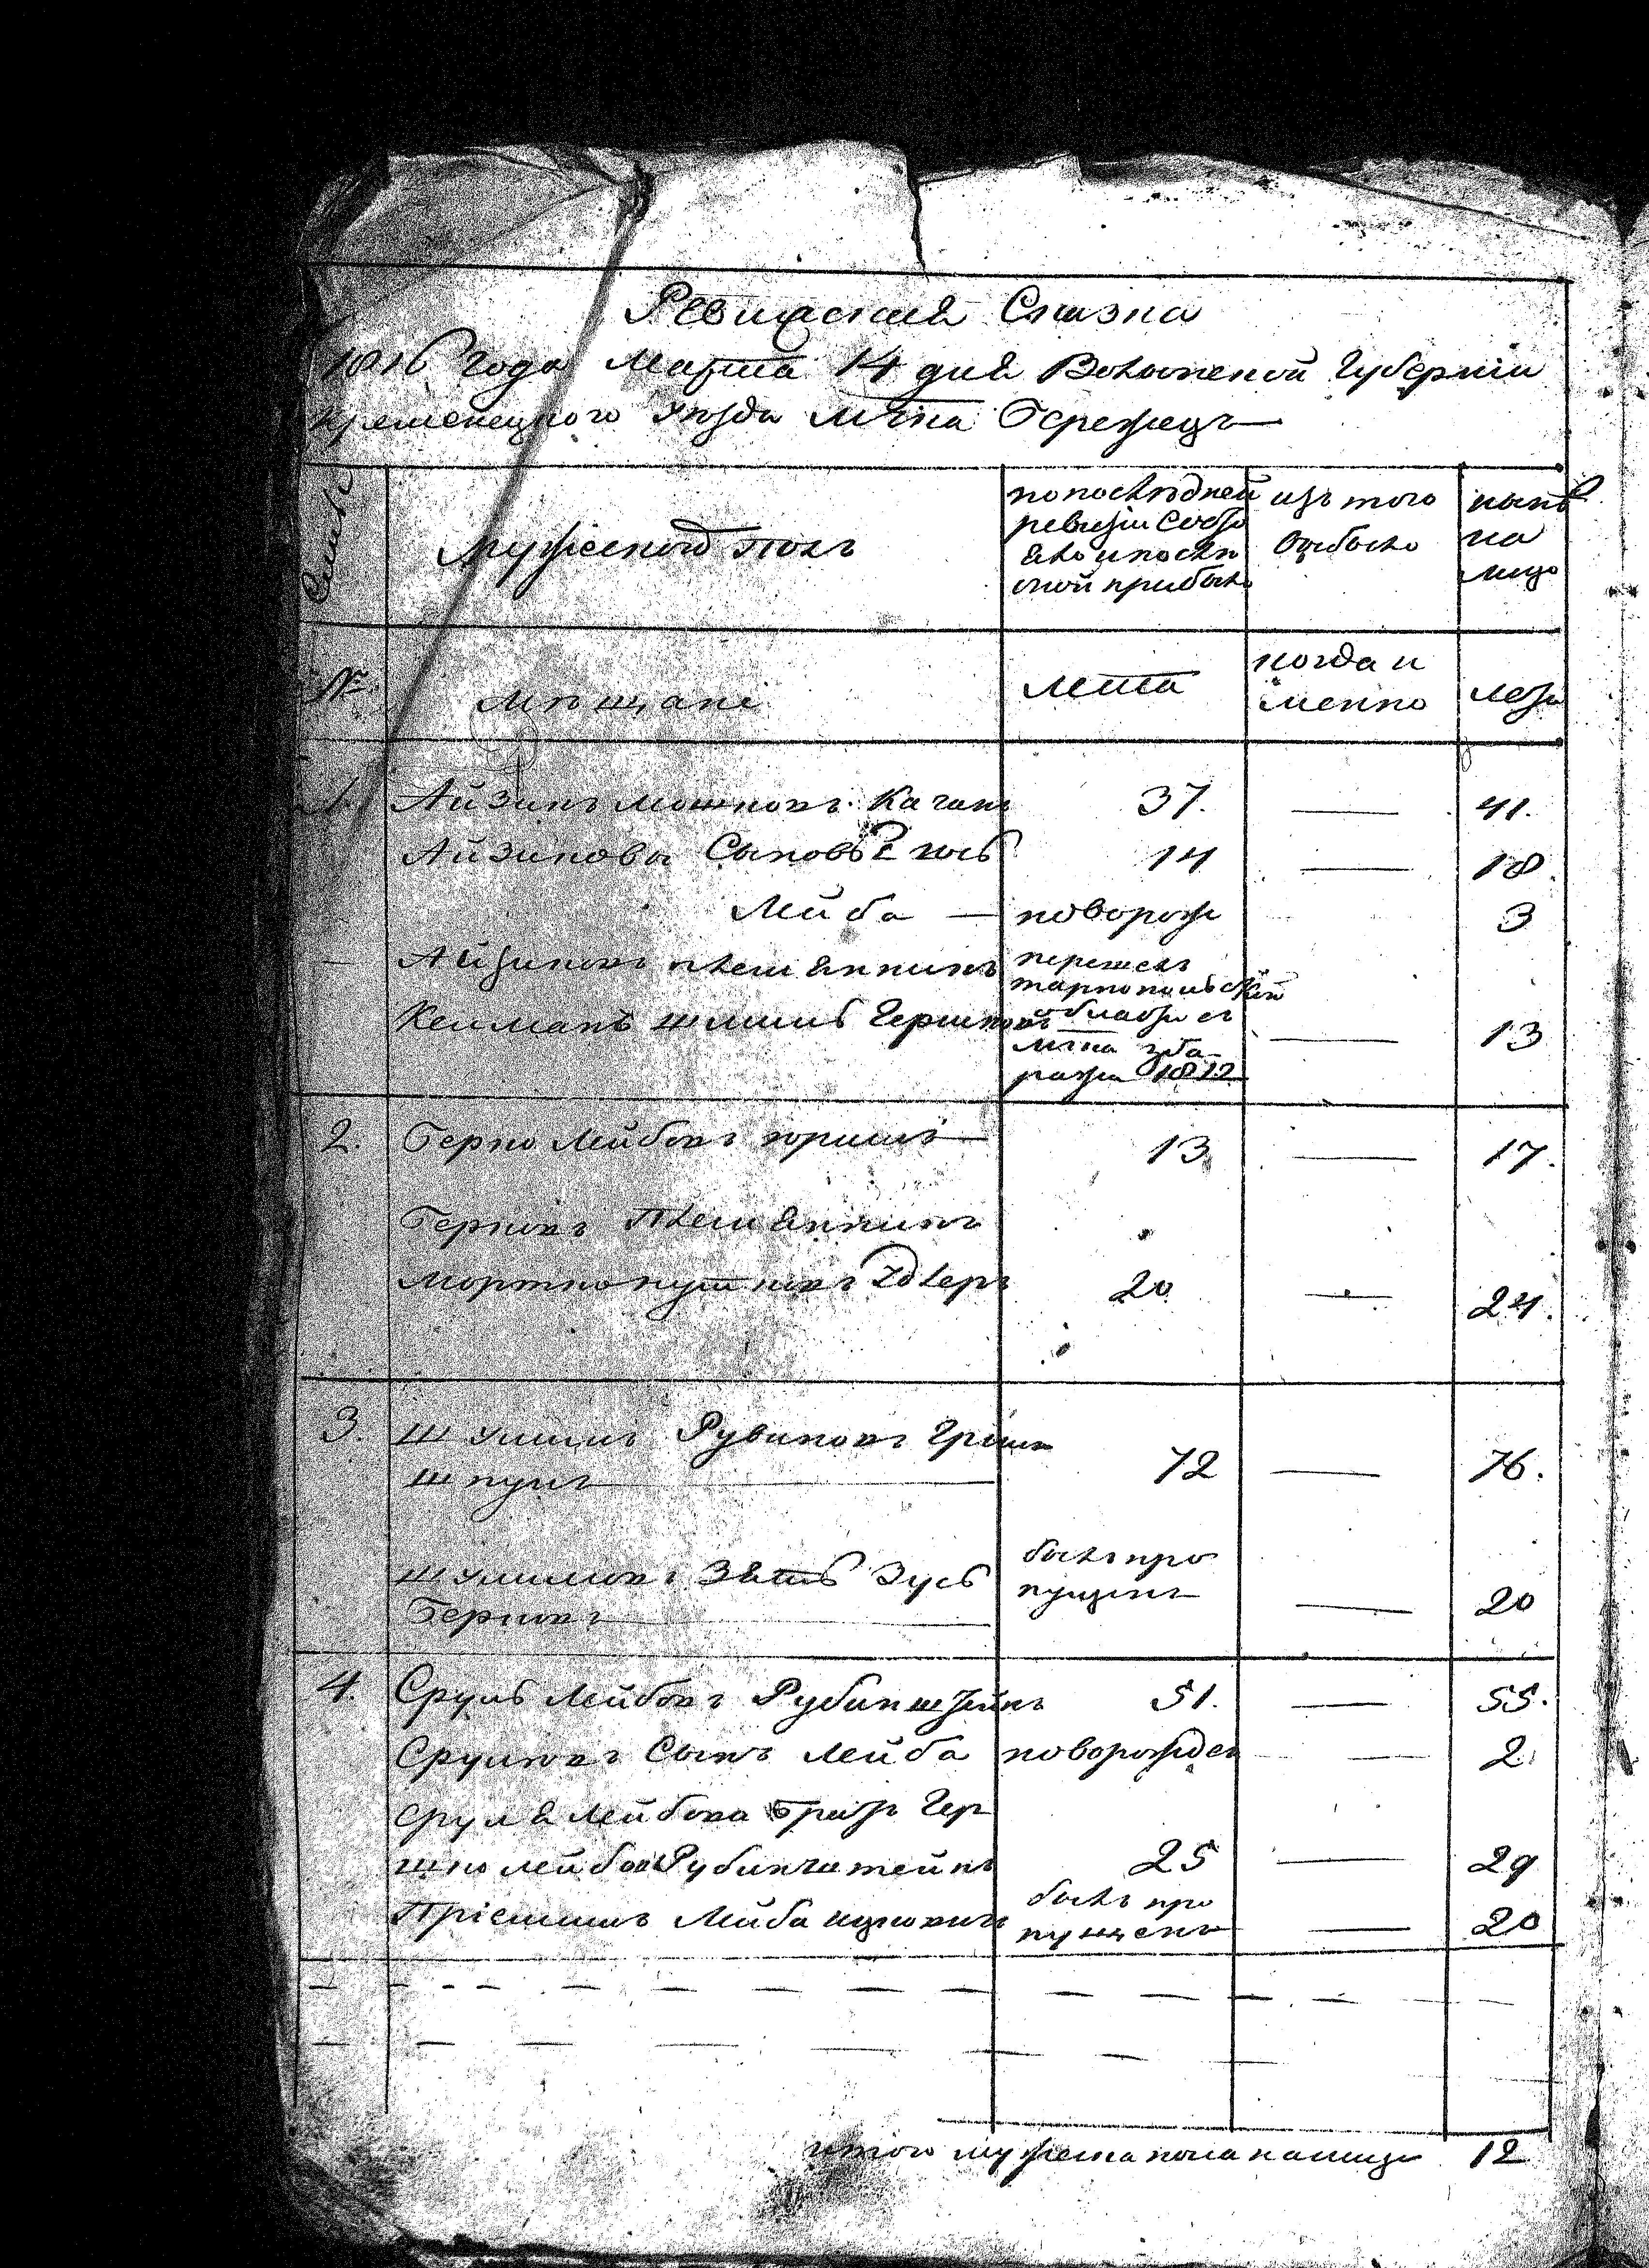 Ревиская Сказка
1816 года Марта 14 дня Волынской Губернии
Кременецкого уѣзда мѣстечка Бережецъ
мужеской полъ
по последней
ревизіи состо
яло и послѣ
оной прибыло
изъ того
выбыло
нынѣ
на
лицо
№
мѣщане
лета
когда и
менно
лета
1. Айзикъ Мошковъ Каганъ 37. — 41.
Айзикова Сыновь 14 — 18.
Лейба — новорож 3
— Айзиковъ племянникъ перешелъ
тарнопольской
Келманъ Гершковъ области съ — 13
мѣстечка зба
ража 1812
2. Берко Лейбовъ 13 — 17.
Берковъ Племянникъ
Мортко 20 — 24.
3. Шулимъ Рувиновъ Грин
шпунъ 72 — 76.
Шулимовъ Зять Зусь былъ про
Берковъ пущенъ — 20
4. Сруль Лейбовъ Рубинштейнъ 51. — 55.
Срулювъ Сынъ Лейба новорожден — 2.
Сруля Лейбова братъ Гер
шко Лейбовъ Рубинштейнъ 25 — 29
Пріемышъ Лейба былъ про
пущенъ — 20
итого мужеска пола налицо 12